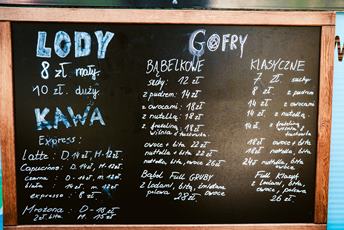 LODY
8 zł mały
10 zł duży
KAWA
Express:
Latte: D. 14 zł, M. 12 zł
Capuccino: D. 14 zł, M. 12 zł
czarna: D. 14 zł, M. 12 zł
biała: 14 zł, M. 12 zł
expresso: 8 zł
Mrożona: D - 18 zł
M. 15 zł
GOFRY
BĄBELKOWE
suchy: 12 zł
z pudrem: 14 zł
z owocami: 18 zł
z nutellą: 18 zł
z frużeliną: 18 zł
wiśnia
owoce + bita 22 zł
nuttella + bita 22 zł
nutella, bita, owoc 26 zł
Bąbel Full GRUBY
z lodami, bitą, śmietaną
polewa 28 zł owoc
KLASYCZNE
7 zł suchy
8 zł z pudrem
14 zł z owocami
14 zł z nutellą
14 zł z frużeliną
wiśnia
18 zł owoc, bita
18 zł nutella, bita
24 zł nutella, bita
owoce
Full Klasyk
z lodami, bitą,
owoce, polewa
26 zł